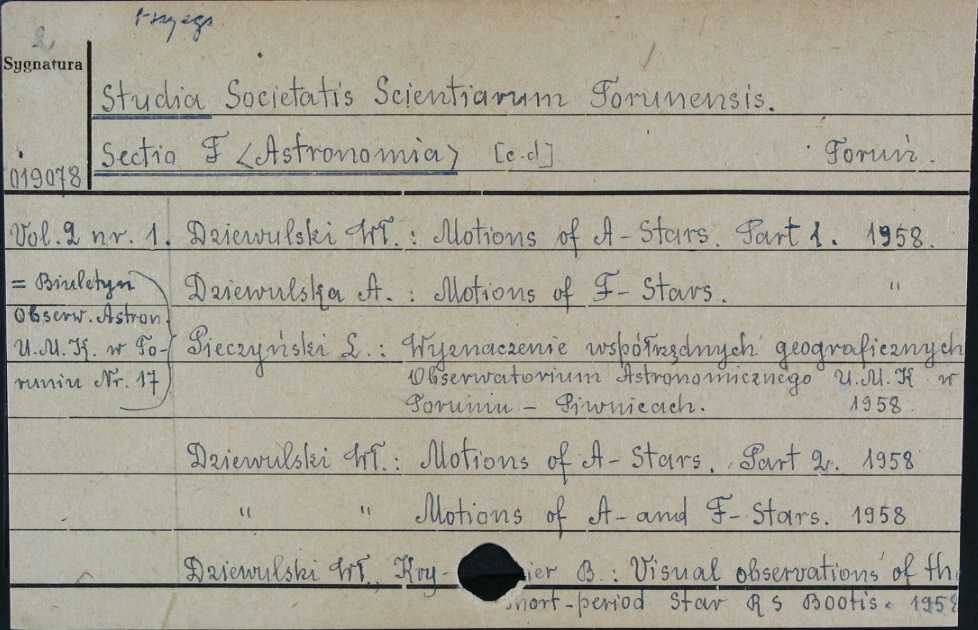 2,
Sygnatura
Studia Societatis Scientiarum Torunensis.
Sectio F <Astronomia> [c.d] Toruń.
019078
Vol. 2 nr. 1. Dziewulski Wł.: Motions of A-Stars. Part 1. 1958.
= Biuletyn Dziewulska A.: Motions of F-Stars. "
Obserw. Astron.
U.M.K. w To- Pieczyński L.: Wyznaczenie współrzędnych geograficznych
runiu Nr. 17 Obserwatorium Astronomicznego U.M.K w
Toruniu – Piwnicach. 1958.
Dziewulski Wł.: Motions of A-Stars. Part 2. 1958
" " Motions of A- and F-Stars. 1958
Dziewulski Wł., Kry- nier B.: Visual observations of the
short-period Star RS Bootis. 1958